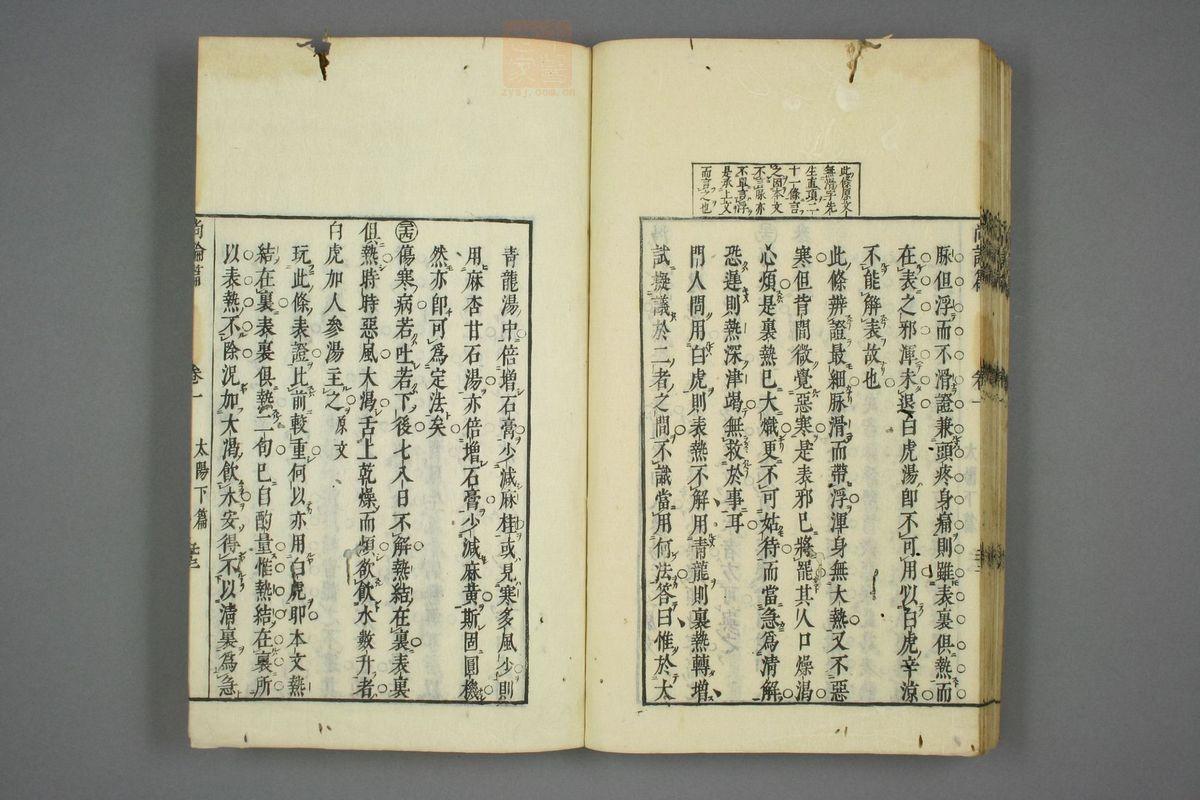 此條原文
無滑字先
生直項二
十一條言
之因本文
不言脉亦
不單言浮
是承上文
而言之也
脉但浮而不滑證兼頭疼身痛則雖表裏俱熱而
在表之邪渾未退白虎湯卽不可用以白虎辛涼
不能解表故也
此條辨證最細脉滑而帶浮渾身無大熱又不惡
寒但背間微覺惡寒是表邪已將罷其人口燥渴
心煩是裏熱已大熾更不可姑待而當急爲清解
恐遲則熱深津竭無救於事耳
門人問用白虎則表熱不解用青龍則裏熱轉增
試擬議於二者之間不識當用何法答曰惟於大
青龍湯中倍增石膏少減麻桂或見寒多風少則
用麻杏甘石湯亦倍增石膏少減麻黄斯固圓機
然亦卽可爲定法矣
傷寒病若吐若下後七八日不解熱結在裏表裏
俱熱時時惡風大渴舌上乾燥而煩欲飲水數升者
白虎加人參湯主之原文
玩此條表證比前較重何以亦用白虎卽本文熱
結在裏表裏俱熱二句已自酌量惟熱結在裏所
以表熱不除況加大渴飲水安得不以清裏爲急
尚論篇 卷一 太陽下篇